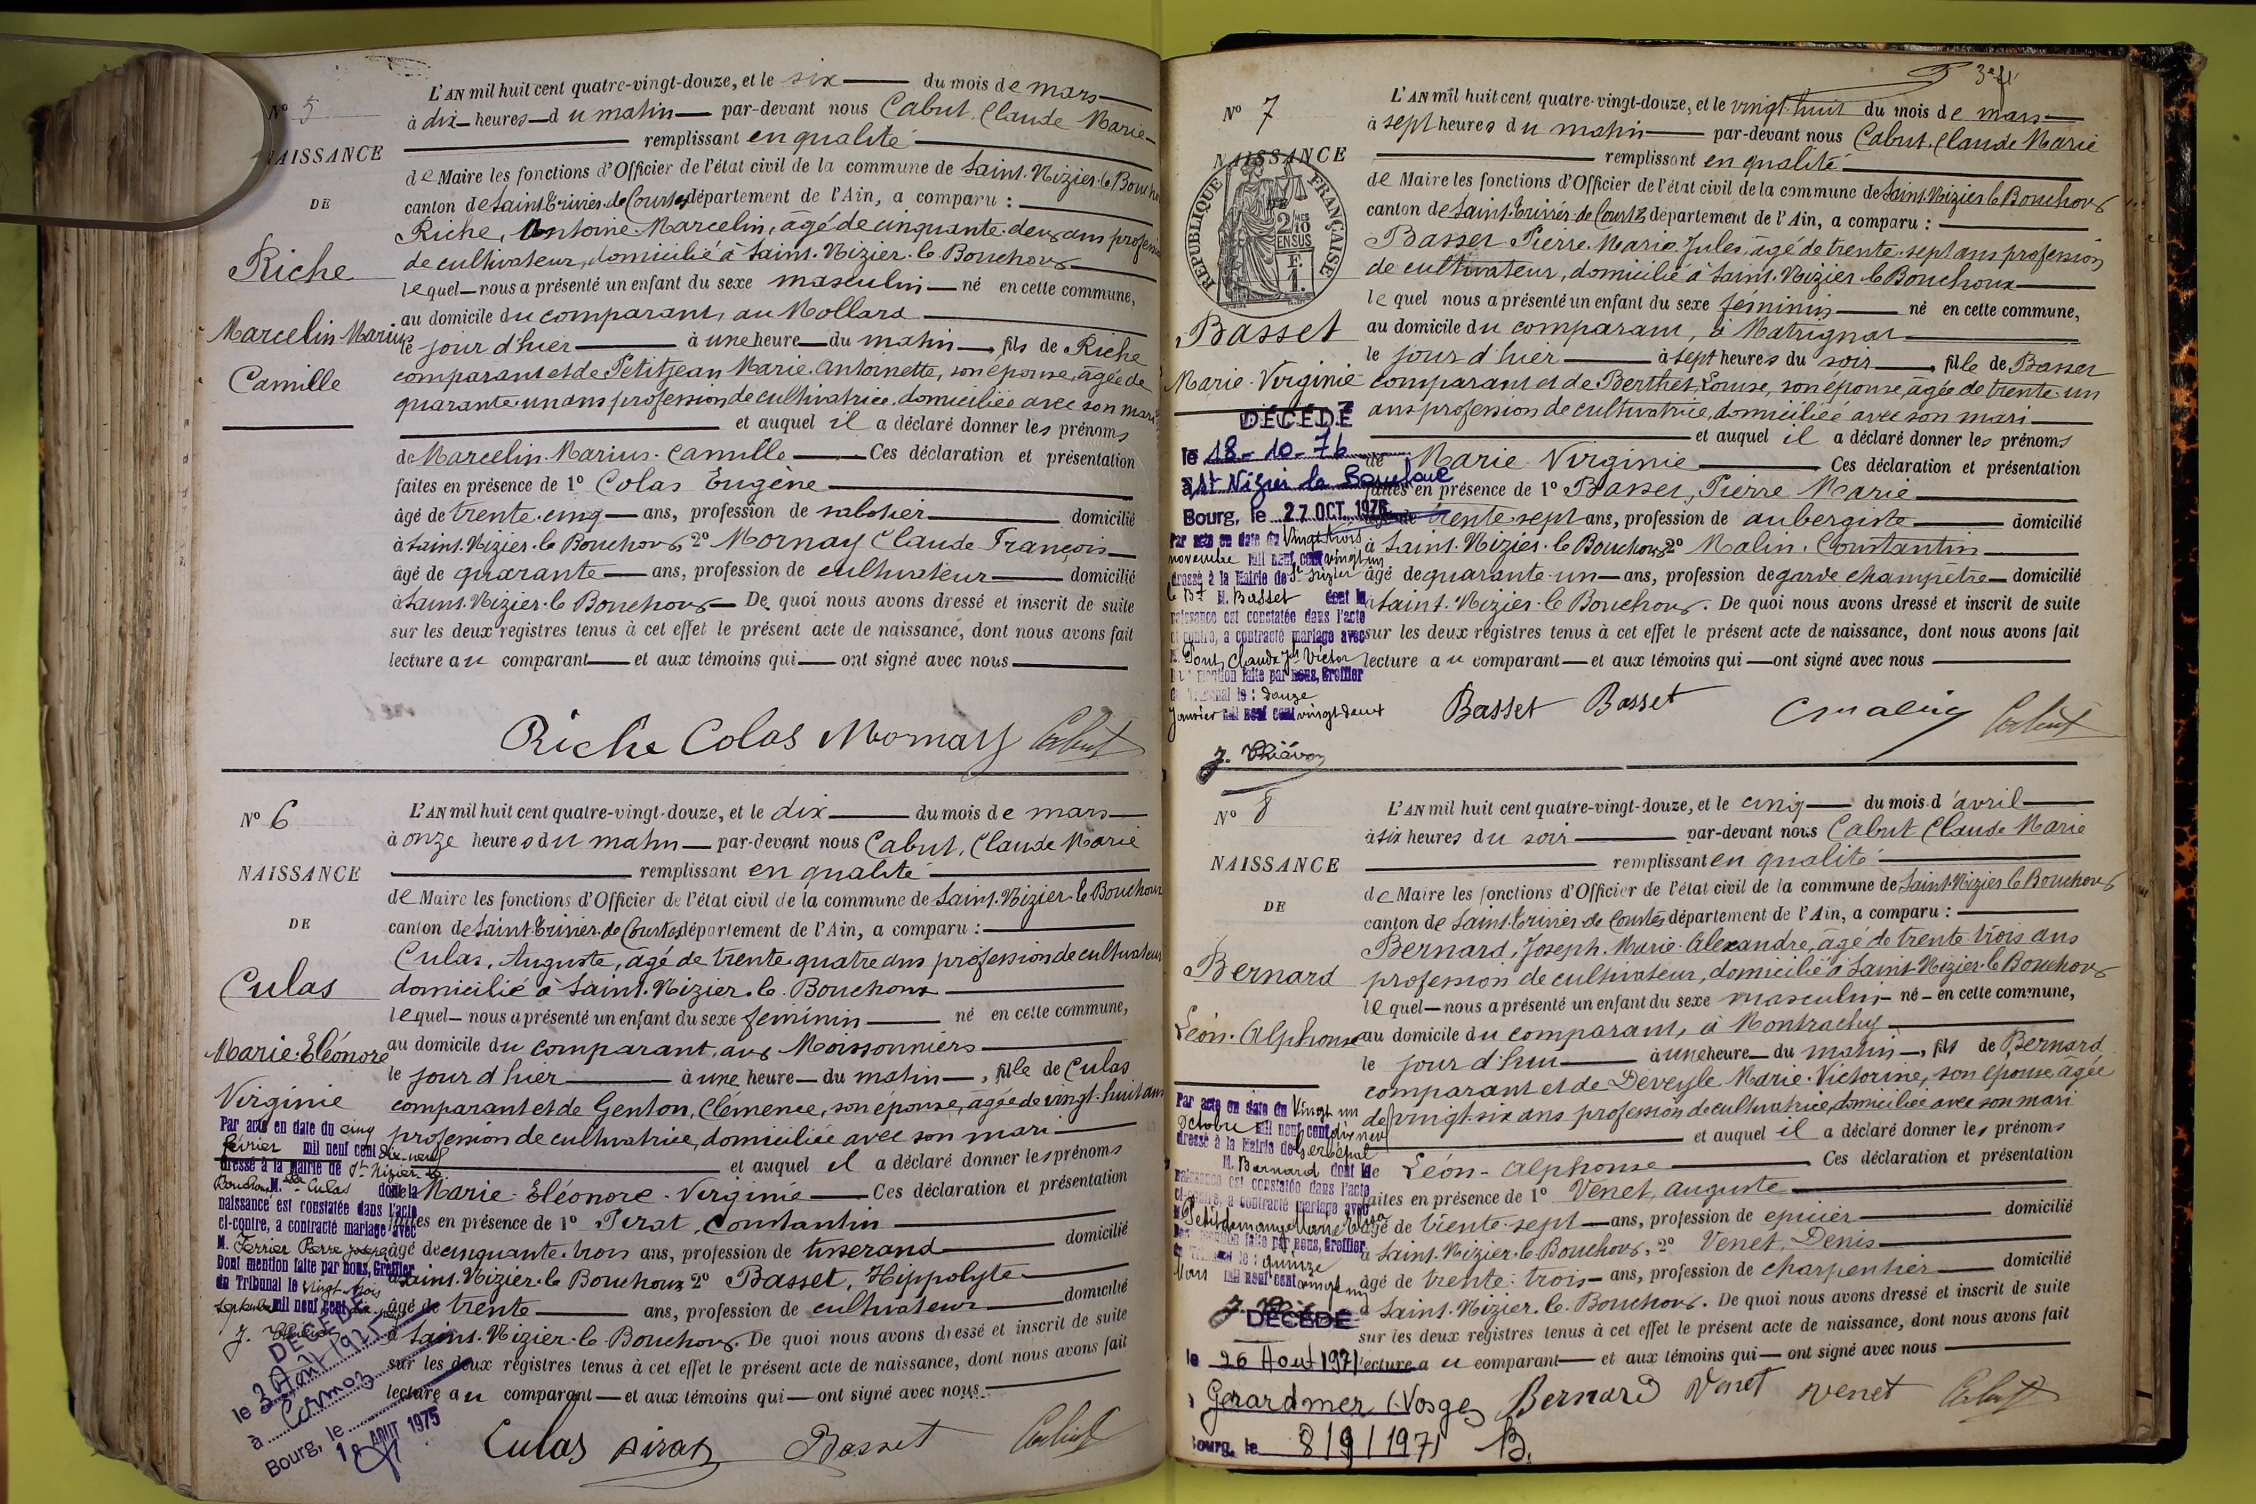 N° 5
NAISSANCE
DE
Riche
Marcelin Marius
Camille
L'AN mil huit cent quatre-vingt-douze, et le six du mois de mars
à dix heures du matin par-devant nous Cabut, Claude Marie
remplissant en qualité
de Maire les fonctions d'Officier de l'état civil de la commune de Saint-Nizier-le-Bouchoux
canton de Saint-Trivier-de-Courtes département de l'Ain, a comparu :
Riche, Antoine-Marcelin, âgé de cinquante-deux ans profession
de cultivateur, domicilié à Saint-Nizier-le-Bouchoux
lequel nous a présenté un enfant du sexe masculin né en cette commune,
au domicile du comparant, au Mollard
le jour d'hier à une heure du matin, fils de Riche
comparant et de Petitjean Marie-Antoinette, son épouse, âgée de
quarante-un ans profession de cultivatrice, domiciliée avec son mari
et auquel il a déclaré donner les prénoms
de Marcelin-Marius-Camille Ces déclaration et présentation
faites en présence de 1° Colas Eugène
âgé de trente-cinq ans, profession de sabotier domicilié
à Saint-Nizier-le-Bouchoux, 2° Mornay Claude François
âgé de quarante ans, profession de cultivateur domicilié
à Saint-Nizier-le-Bouchoux De quoi nous avons dressé et inscrit de suite
sur les deux registres tenus à cet effet le présent acte de naissance, dont nous avons fait
lecture au comparant et aux témoins qui ont signé avec nous
Riche Colas Mornay Cabut
N° 6
NAISSANCE
DE
Culas
Marie-Eléonore
Virginie
Par acte en date du cinq
février mil neuf cent dix-neuf
dressé à la Mairie de St Nizier-le
Bouchoux M. elle Culas dont la
naissance est constatée dans l'acte
ci-contre, a contracté mariage avec
M. Ferrier Pierre Joseph
Dont mention faite par nous, Greffier
du Tribunal le vingt-trois
septembre mil neuf cent dix-neuf
DÉCÉDÉ
le 3 Août 1975
à Cormoz
Bourg, le AOUT 1975
L'AN mil huit cent quatre-vingt-douze, et le dix du mois de mars
à onze heures du matin par-devant nous Cabut, Claude Marie
remplissant en qualité
de Maire les fonctions d'Officier de l'état civil de la commune de Saint-Nizier-le-Bouchoux
canton de Saint-Trivier-de-Courtes département de l'Ain, a comparu :
Culas, Auguste, âgé de trente-quatre ans profession de cultivateur
domicilié à Saint-Nizier-le-Bouchoux
lequel nous a présenté un enfant du sexe féminin né en cette commune,
au domicile du comparant, aux Moissonniers
le jour d'hier à une heure du matin, fille de Culas
comparant et de Genton, Clémence, son épouse, agée de vingt-huit ans
profession de cultivatrice, domiciliée avec son mari
et auquel il a déclaré donner les prénoms
de Marie-Eléonore-Virginie Ces déclaration et présentation
faites en présence de 1° Pirat, Constantin
âgé de cinquante-trois ans, profession de tisserand domicilié
à Saint-Nizier-le-Bouchoux 2° Basset, Hippolyte
âgé de trente ans, profession de cultivateur domicilié
à Saint-Nizier-le-Bouchoux. De quoi nous avons dressé et inscrit de suite
sur les deux registres tenus à cet effet le présent acte de naissance, dont nous avons fait
lecture au comparant et aux témoins qui ont signé avec nous
Culas Pirat Basset Cabut
N° 7
NAISSANCE
RÉPUBLIQUE FRANÇAISE
2/10 EN SUS
F. 1.
Basset
Marie-Virginie
DÉCÉDÉE
le 18-10-76
à St Nizier le Bouchoux
Bourg, le 27 OCT. 1976
Par acte en date du Vingt trois
novembre mil neuf cent vingt-un
dressé à la Mairie de St Nizier
le Bt M. Basset dont la
naissance est constatée dans l'acte
ci-contre, a contracté mariage avec
M. Pont, Claude Jh Victor
Dont mention faite par nous, Greffier
du Tribunal le : douze
Janvier mil neuf cent vingt-deux
3e f
L'AN mil huit cent quatre-vingt-douze, et le vingt-huit du mois de mars
à sept heures du matin par-devant nous Cabut, Claude Marie
remplissant en qualité
de Maire les fonctions d'Officier de l'état civil de la commune de Saint-Nizier-le-Bouchoux
canton de Saint-Trivier-de-Courtes, département de l'Ain, a comparu :
Basset Pierre-Marie-Jules, âgé de trente-sept ans profession
de cultivateur, domicilié à Saint-Nizier-le-Bouchoux
lequel nous a présenté un enfant du sexe féminin né en cette commune,
au domicile du comparant, à Matrignat
le jour d'hier à sept heures du soir, fille de Basset
comparant et de Berthet, Louise, son épouse, âgée de trente-un
ans profession de cultivatrice, domiciliée avec son mari
et auquel il a déclaré donner les prénoms
de Marie Virginie Ces déclaration et présentation
faites en présence de 1° Basset, Pierre Marie
âgé de trente-sept ans, profession de aubergiste domicilié
à Saint-Nizier-le-Bouchoux 2° Malin, Constantin
âgé de quarante-un ans, profession de garde champêtre domicilié
à Saint-Nizier-le-Bouchoux. De quoi nous avons dressé et inscrit de suite
sur les deux registres tenus à cet effet le présent acte de naissance, dont nous avons fait
lecture au comparant et aux témoins qui ont signé avec nous
Basset Basset Malin Cabut
N° 8
NAISSANCE
DE
Bernard
Léon-Alphonse
Par acte en date du Vingt un
Octobre mil neuf cent dix neuf
dressé à la Mairie de Gerbépal
M. Bernard dont la
naissance est constatée dans l'acte
ci-contre, a contracté mariage avec
Petitdemange Marie
Dont mention faite par nous, Greffier
du Tribunal le : quinze
Mars mil neuf cent vingt un
DÉCÉDÉ
le 26 Aout 1971
à Gerardmer (Vosges)
Bourg, le 8/9/1971
L'AN mil huit cent quatre-vingt-douze, et le cinq du mois d'avril
à six heures du soir par-devant nous Cabut Claude Marie
remplissant en qualité
de Maire les fonctions d'Officier de l'état civil de la commune de Saint-Nizier-le-Bouchoux
canton de Saint-Trivier-de-Courtes département de l'Ain, a comparu :
Bernard, Joseph-Marie-Alexandre, âgé de trente-trois ans
profession de cultivateur, domicilié à Saint-Nizier-le-Bouchoux
lequel nous a présenté un enfant du sexe masculin né en cette commune,
au domicile du comparant, à Montrachy
le jour d'hui à une heure du matin, fils de Bernard
comparant et de Deveyle Marie-Victorine, son épouse, âgée
de vingt-six ans profession de cultivatrice, domiciliée avec son mari
et auquel il a déclaré donner les prénoms
de Léon-Alphonse Ces déclaration et présentation
faites en présence de 1° Venet, Auguste
âgé de trente-sept ans, profession de epicier domicilié
à Saint-Nizier-le-Bouchoux, 2° Venet, Denis
âgé de trente-trois ans, profession de charpentier domicilié
à Saint-Nizier-le-Bouchoux. De quoi nous avons dressé et inscrit de suite
sur les deux registres tenus à cet effet le présent acte de naissance, dont nous avons fait
lecture au comparant et aux témoins qui ont signé avec nous
Bernard Venet Venet Cabut
B.